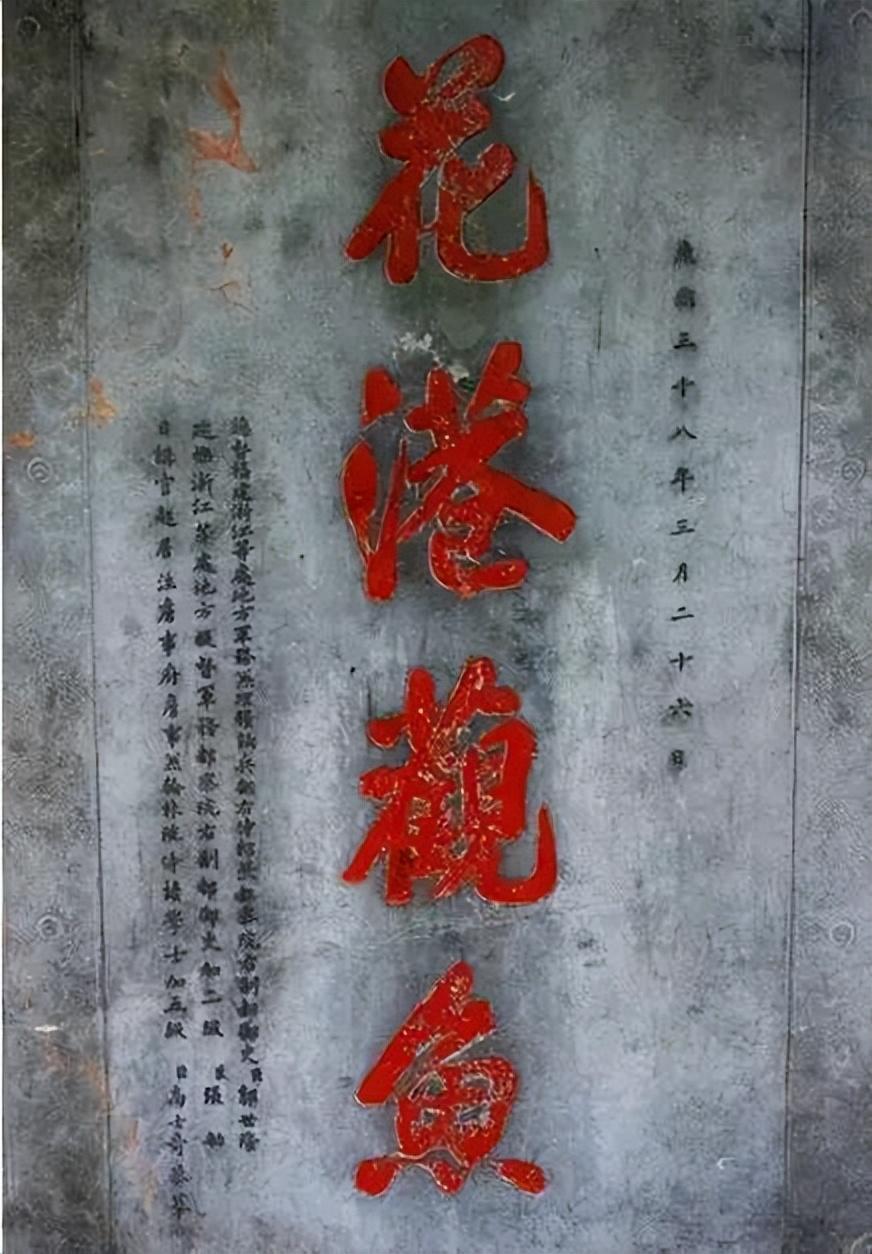 康熙三十八年三月二十六日
花港觀魚
總督福建浙江等處地方軍務兼理糧餉兵部右侍郎兼都察院右副都御史臣郭世隆
巡撫浙江等處地方提督軍務都察院右副都御史加二級臣張
日講官起居注詹事府詹事兼翰林院侍讀學士加五級臣高士奇恭摹